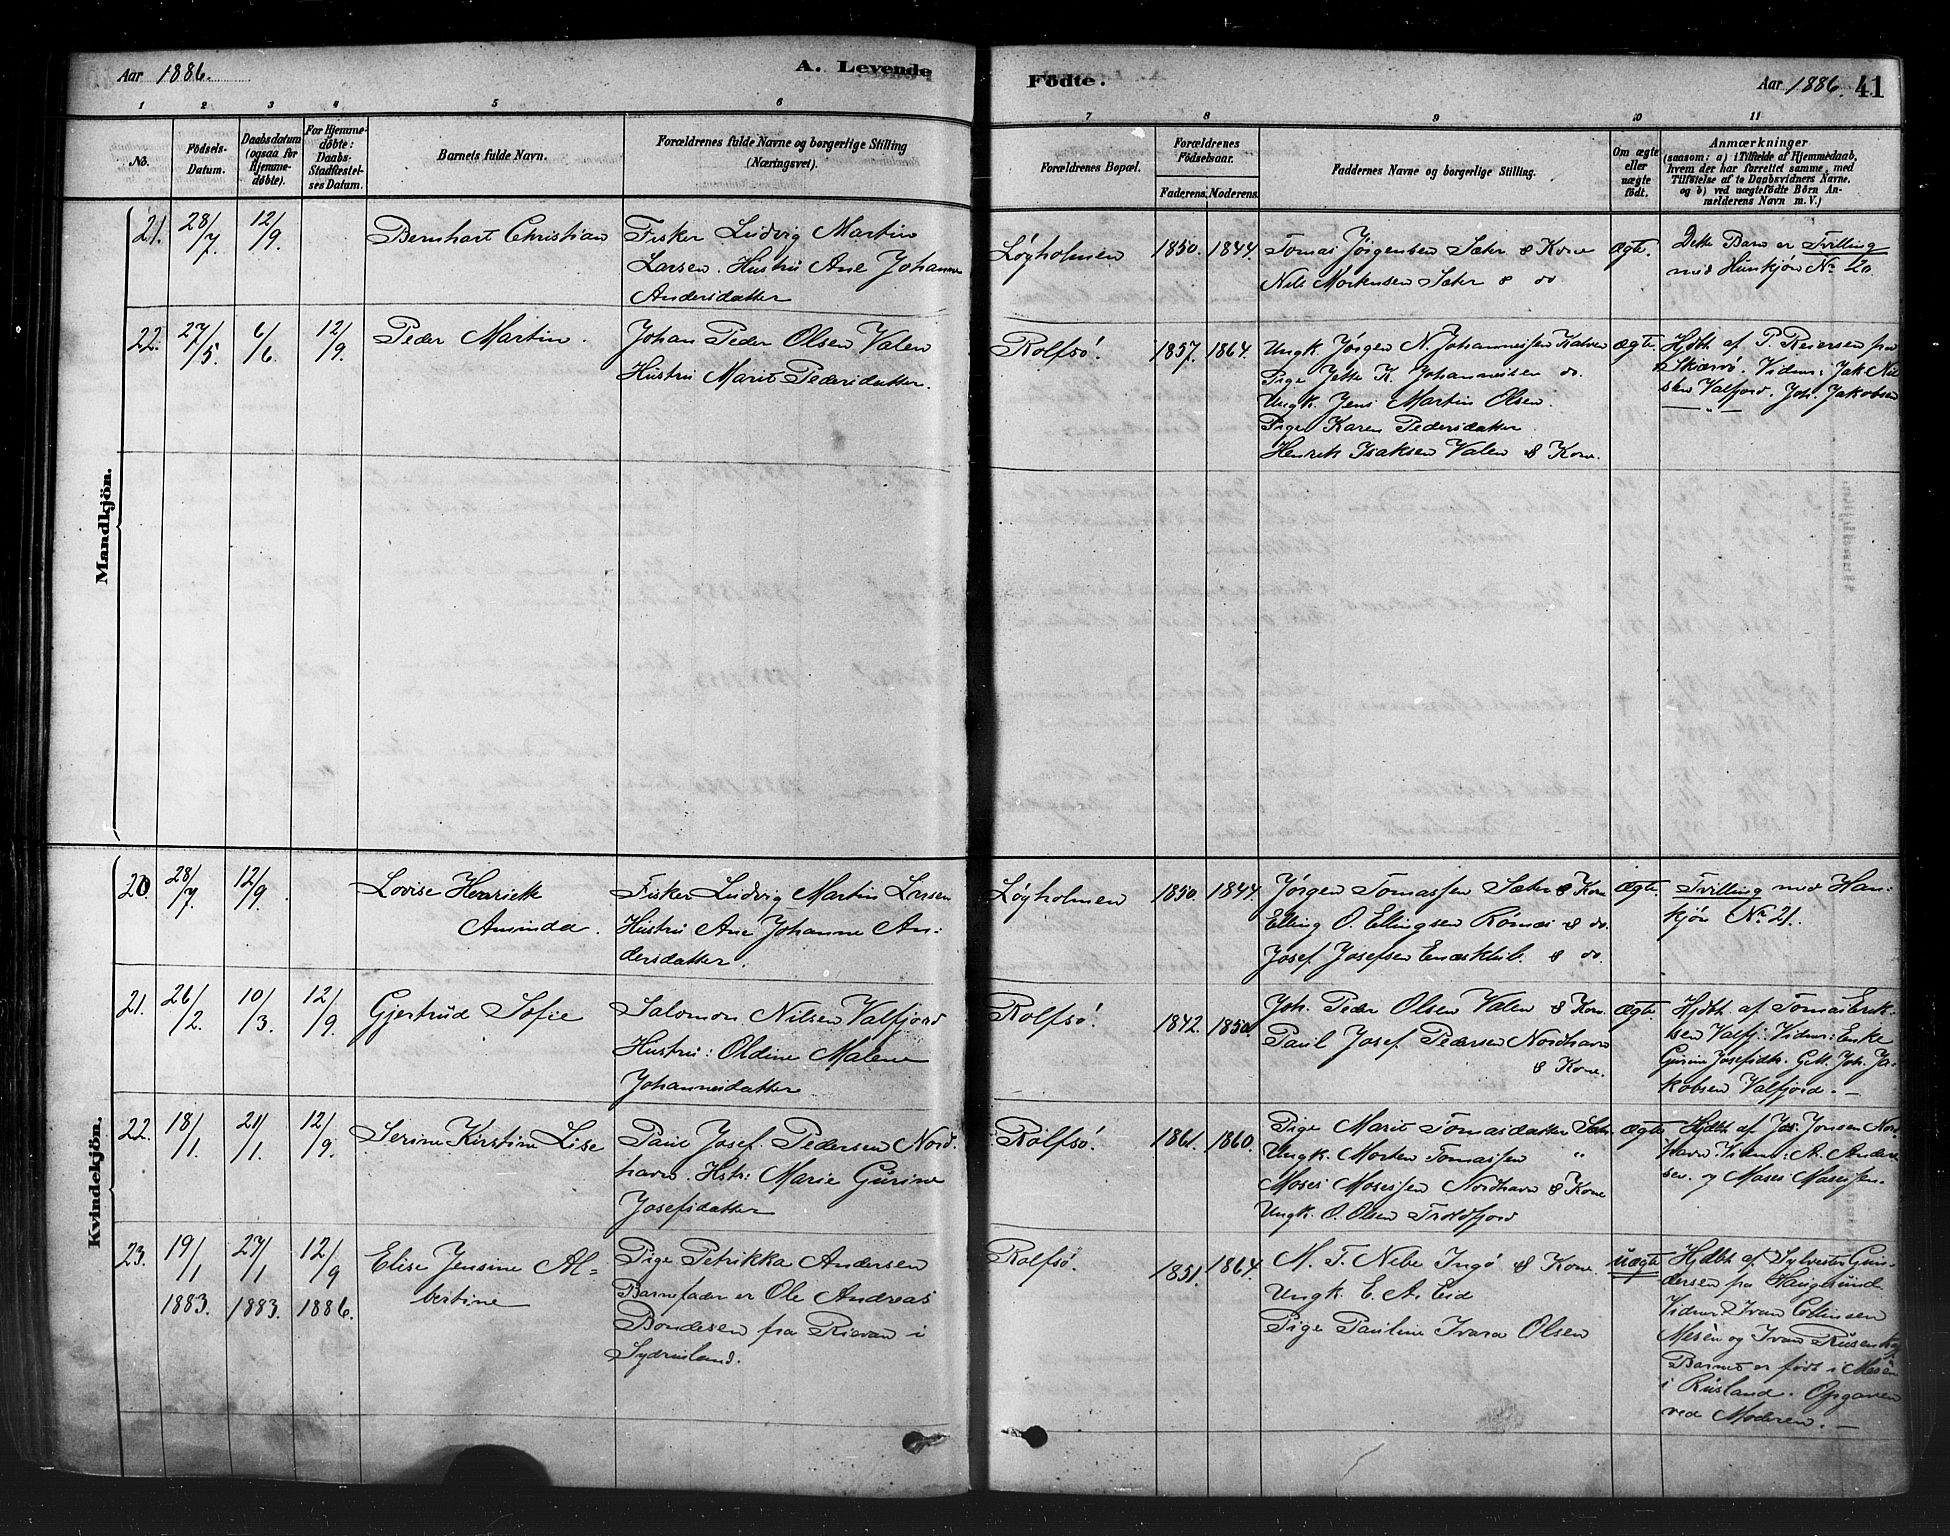 Aar 1886.
A. Levende
Födte.
Aar 1886.
41
1 2 3 4 5 6 7 8 9 10 11
No.
Födsels-
Datum.
Daabsdatum
(ogsaa for
Hjemme-
döbte).
For Hjemme-
döbte:
Daabs-
Stadfæstel-
ses Datum.
Barnets fulde Navn.
Forældrenes fulde Navne og borgerlige Stilling
(Næringsvei).
Forældrenes Bopæl.
Forældrenes
Födselsaar.
Faderens. Moderens.
Faddernes Navne og borgerlige Stilling.
Om ægte
eller
uægte
födt.
Anmærkninger
(saasom: a) i Tilfælde af Hjemmedaab,
hvem der har forrettet samme, med
Tilföielse af to Daabsvidners Navne.
og b) ved uægtefödte Börn An-
melderens Navn m. V.)
Mandkjön.
21. 28/7 12/9. Bernhart Christian
Fisker Ludvig Martin
Larsen. Hustru Ane Johanne
Andersdatter
Løgholmen 1850. 1844.
Tomas Jørgensen Sæter & Kone
Nils Mortensen Sæter & do
Ægte.
Dette Barn er Tvilling
med Hunkjøn No 20.
22. 27/5 6/6. 12/9. Peder Martin.
Johan Peder Olsen Valen
Hustru Marit Pedersdatter.
Rolfsö. 1857. 1864.
Ungk. Jørgen N. Johannessen Kalven
Pige Jette K. Johannessen do.
Ungk. Jens Martin Olsen.
Pige Karen Pedersdatter
Henrik Isaksen Valen & Kone.
Ægte.
Hjdbt af P. Reiersen fra
Skjærvö. Vidner: Jak. Nil
sen Valfjord. Joh. Jakobsen
— „ —
Kvindekjön.
20. 28/7 12/9. Lovise Henriette
Aminda.
Fisker Ludvig Martin Larsen
Hustru Ane Johanne An:
dersdatter.
Løgholmen 1850. 1844.
Jørgen Tomassen Sæter & Kone
Elling O. Ellingsen Rømas & do.
Josef Josefsen & do.
Ægte.
Tvilling med Han:
kjøn No 21.
21. 26/2 10/3. 12/9. Gjertrud Sofie
Salomon Nilsen Valfjord
Hustru: Oldine Malene
Johannesdatter
Rolfsö. 1842. 1850.
Joh. Peder Olsen Valen & Kone
Paul Josef Pedersen Nordhavn
& Kone.
Ægte.
Hjdbt af Tomas Erik-
sen Valfj: Vidner: Enke
Gurine Josefsdtr. Gift. Joh. Ja-
kobsen Valfjord. —
22. 18/1 21/1. 12/9. Serine Kirstine Lise
Paul Josef Pedersen Nord
havn. Hstr: Marie Gurine
Josefsdatter
Rolfsö. 1861. 1860.
Pige Marit Tomasdatter Sæter
Ungk. Morten Tomassen „
Moses Mosessen Nordhavn & Kone
Ungk. O. Olsen Troldfjord
Ægte
Hjdbt af Jos. Jonsen Nor
havn. Vidner: A. Ander
sen. og Moses Mosessen.
23. 19/1 27/1 12/9 Elise Jensine Al=
1883. 1883. 1886. bertine
Pige Petrikka Andersen
Barnefader er Ole Andreas
Bondesen fra in
Sydrusland.
Rolfsö. 1851. 1864.
M. F. Nebe Ingö & Kone
Ungk. E. A. Eid
Pige Pauline Ivara Olsen
Uægte
Hjdbt af Sylvester Gun
dersen fra Haugesund
Vidner Ivan
Mesèn og Ivan
Barnet er født i Mesèn
i Rusland. Opgaven
ved Moderen. —